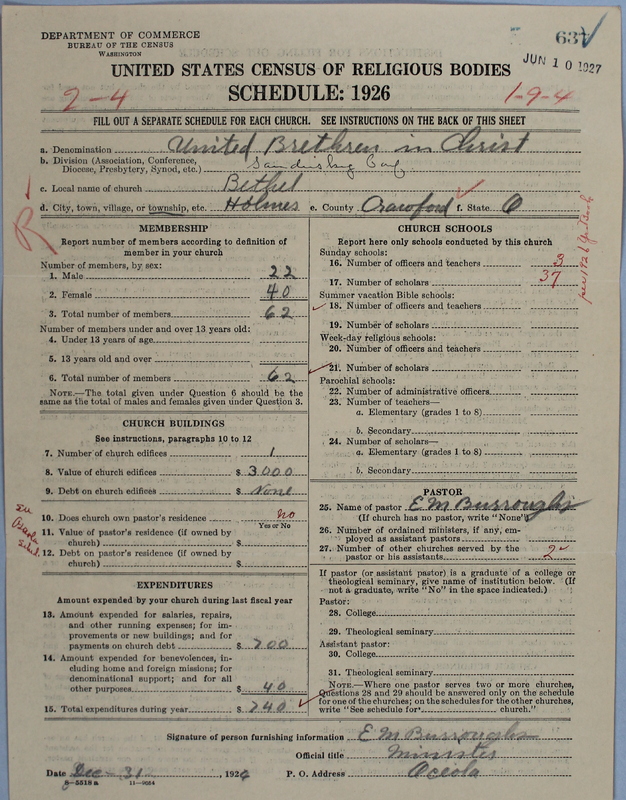 DEPARTMENT OF COMMERCE
BUREAU OF THE CENSUS
WASHINGTON
637
JUN 10 1927
UNITED STATES CENSUS OF RELIGIOUS BODIES
2-4 SCHEDULE: 1926 1-9-4
FILL OUT A SEPARATE SCHEDULE FOR EACH CHURCH. SEE INSTRUCTIONS ON THE BACK OF THIS SHEET
a. Denomination United Brethren in Christ
b. Division (Association, Conference,
Diocese, Presbytery, Synod, etc.)
c. Local name of church Bethel
d. City, town, village, or township, etc. Holmes e. County Crawford f. State O
R
MEMBERSHIP
Report number of members according to definition of
member in your church
Number of members, by sex:
1. Male 22
2. Female 40
3. Total number of members 62
Number of members under and over 13 years old:
4. Under 13 years of age
5. 13 years old and over
6. Total number of members 62
NOTE.—The total given under Question 6 should be the
same as the total of males and females given under Question 3.
CHURCH BUILDINGS
See instructions, paragraphs 10 to 12
7. Number of church edifices 1
8. Value of church edifices $ 3000
9. Debt on church edifices $ None
10. Does church own pastor's residence No
Yes or No
11. Value of pastor's residence (if owned by
church) $
12. Debt on pastor's residence (if owned by
church) $
EXPENDITURES
Amount expended by your church during last fiscal year
13. Amount expended for salaries, repairs,
and other running expenses; for im-
provements or new buildings; and for
payments on church debt $ 700
14. Amount expended for benevolences, in-
cluding home and foreign missions; for
denominational support; and for all
other purposes $ 40
15. Total expenditures during year $ 740
CHURCH SCHOOLS
Report here only schools conducted by this church
Sunday schools:
16. Number of officers and teachers 3
17. Number of scholars 37
Summer vacation Bible schools:
18. Number of officers and teachers
19. Number of scholars
Week-day religious schools:
20. Number of officers and teachers
21. Number of scholars
Parochial schools:
22. Number of administrative officers
23. Number of teachers—
a. Elementary (grades 1 to 8)
b. Secondary
24. Number of scholars—
a. Elementary (grades 1 to 8)
b. Secondary
PASTOR
25. Name of pastor E M Burroughs
(If church has no pastor, write "None")
26. Number of ordained ministers, if any, em-
ployed as assistant pastors
27. Number of other churches served by the
pastor or his assistants 2
If pastor (or assistant pastor) is a graduate of a college or
theological seminary, give name of institution below. (If
not a graduate, write "No" in the space indicated.)
Pastor:
28. College
29. Theological seminary
Assistant pastor:
30. College
31. Theological seminary
NOTE.—Where one pastor serves two or more churches,
Questions 28 and 29 should be answered only on the schedule
for one of the churches; on the schedules for the other churches,
write "See schedule for church."
Signature of person furnishing information E M Burroughs
Official title Minister
Date Dec 31, 1926 P. O. Address Oceola
8—5518a 11—9684